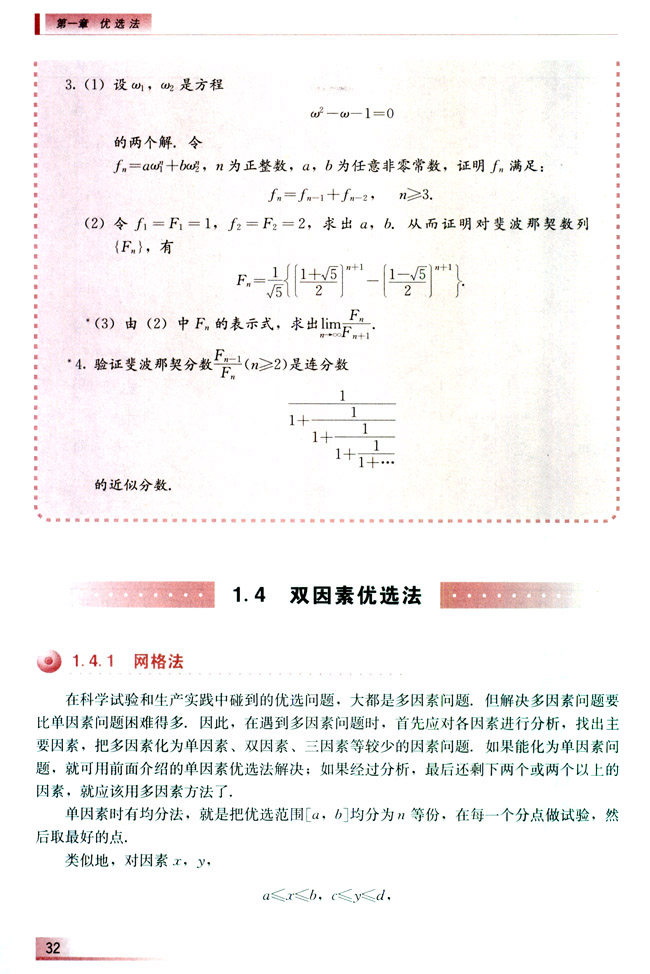 第一章 优选法
3. (1) 设 ω₁，ω₂ 是方程
ω²－ω－1＝0
的两个解．令
fₙ＝aω₁ⁿ＋bω₂ⁿ，n 为正整数，a，b 为任意非零常数，证明 fₙ 满足：
fₙ＝fₙ₋₁＋fₙ₋₂， n≥3.
(2) 令 f₁＝F₁＝1，f₂＝F₂＝2，求出 a，b．从而证明对斐波那契数列
{Fₙ}，有
Fₙ＝1/√5{[(1＋√5)/2]ⁿ⁺¹－[(1－√5)/2]ⁿ⁺¹}.
*(3) 由 (2) 中 Fₙ 的表示式，求出 lim n→∞ Fₙ/Fₙ₊₁.
*4. 验证斐波那契分数 Fₙ₋₁/Fₙ (n≥2)是连分数
1
1＋ 1
1＋ 1
1＋ 1
1＋…
的近似分数．
1.4 双因素优选法
1.4.1 网格法
在科学试验和生产实践中碰到的优选问题，大都是多因素问题．但解决多因素问题要
比单因素问题困难得多．因此，在遇到多因素问题时，首先应对各因素进行分析，找出主
要因素，把多因素化为单因素、双因素、三因素等较少的因素问题．如果能化为单因素问
题，就可用前面介绍的单因素优选法解决；如果经过分析，最后还剩下两个或两个以上的
因素，就应该用多因素方法了．
单因素时有均分法，就是把优选范围[a，b]均分为 n 等份，在每一个分点做试验，然
后取最好的点．
类似地，对因素 x，y，
a≤x≤b，c≤y≤d，
32